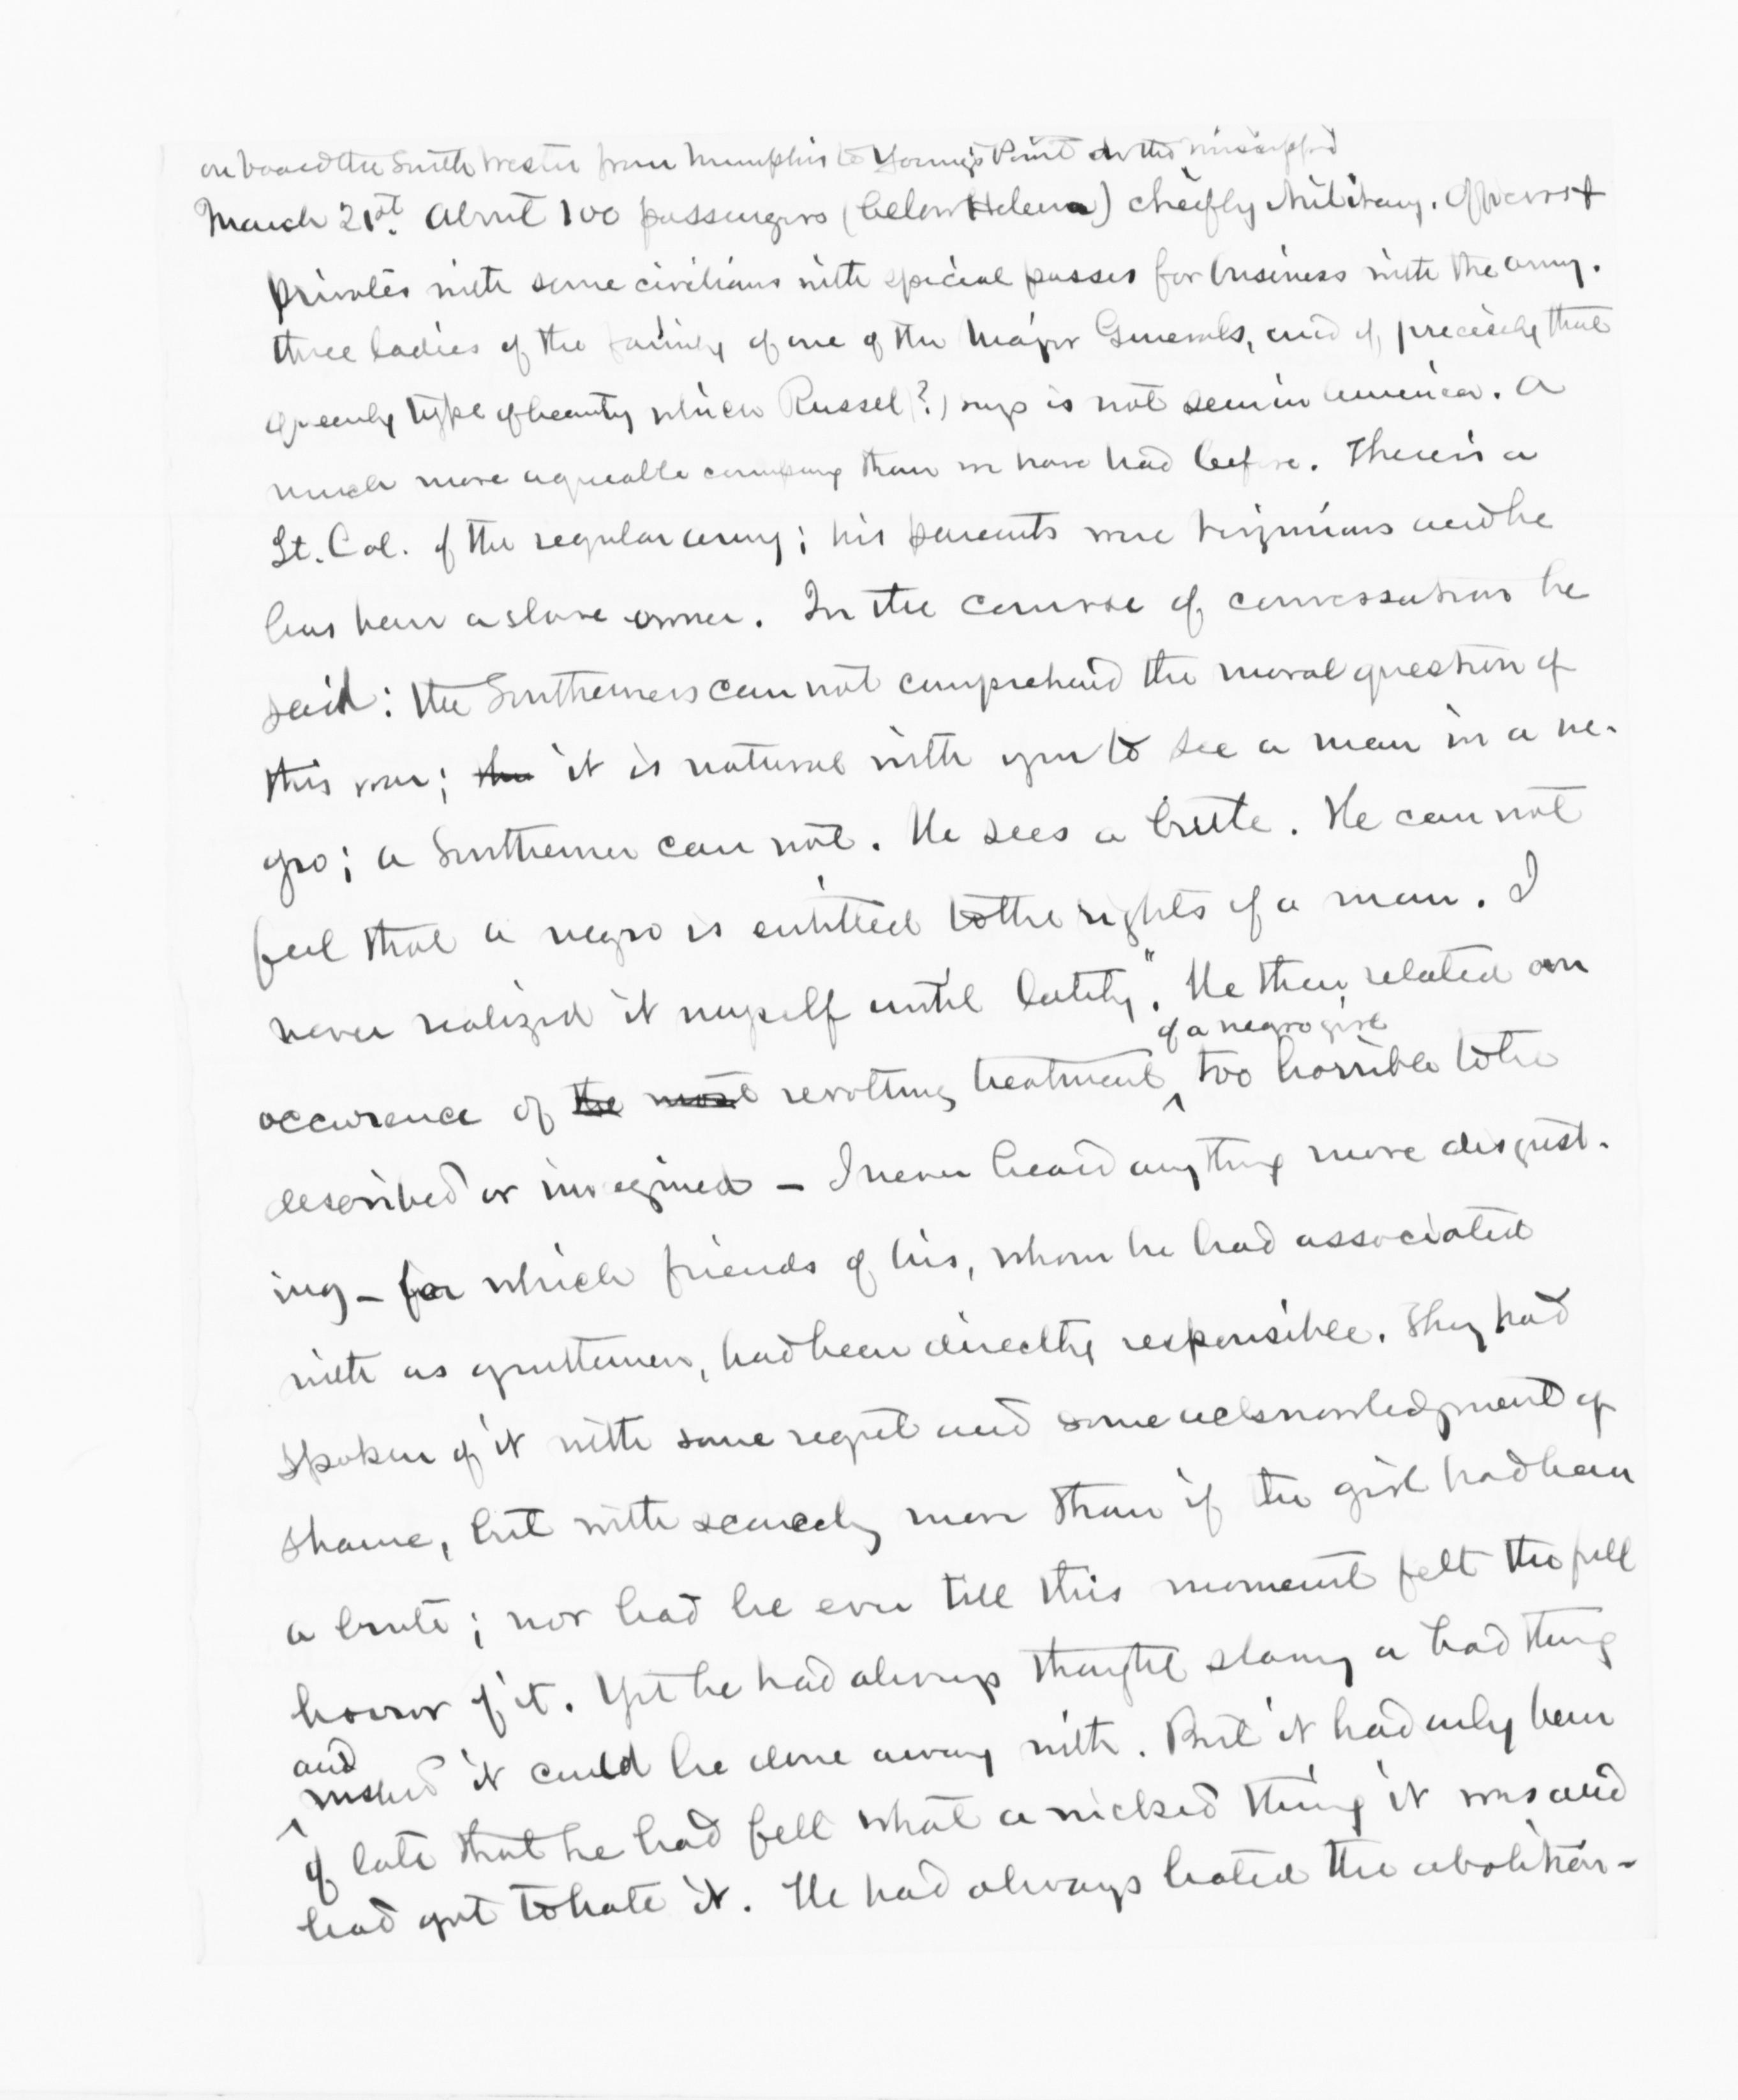 on board the South Wester from Memphis to Young's Point on the Mississippi
March 21st. About 100 passengers (below Helena) chiefly Military. Officers &
privates with some civilians with special passes for business with the army.
three ladies of the family of one of the Major Generals, and of precisely that
queenly type of beauty which Russel (?) says is not seen in America. A
much more agreeable company than we have had before. There is a
Lt. Col. of the regular army; his parents were Virginians and he
has been a slave owner. In the course of conversation he
said: the Southerners can not comprehend the moral question of
this war; the it is natural with you to see a man in a ne-
gro; a Southerner can not. He sees a brute. He can not
feel that a negro is entitled to the rights of a man. I
never realized it myself until lately". He then related an
occurence of the most revolting treatment of a negro girl too horrible to be
described or imagined — I never heard anything more disgust-
ing — for which friends of his, whom he had associated
with as gentlemen, had been directly responsible. They had
spoken of it with some regret and some acknowledgment of
shame, but with scarcely more than if the girl had been
a brute; nor had he ever till this moment felt the full
horror of it. Yet he had always thought slavery a bad thing
and wished it could be done away with. But it had only been
of late that he had felt what a wicked thing it was and
had got to hate it. He had always hated the abolition-